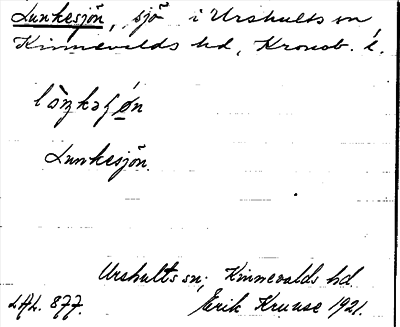 Lunkesjön, sjö i Urshults sn
Kinnevalds hd, Kronob. l.
Lunkesjön.
Urshults sn; Kinnevalds hd.
LAL. 877. Erik Kruuse 1921.